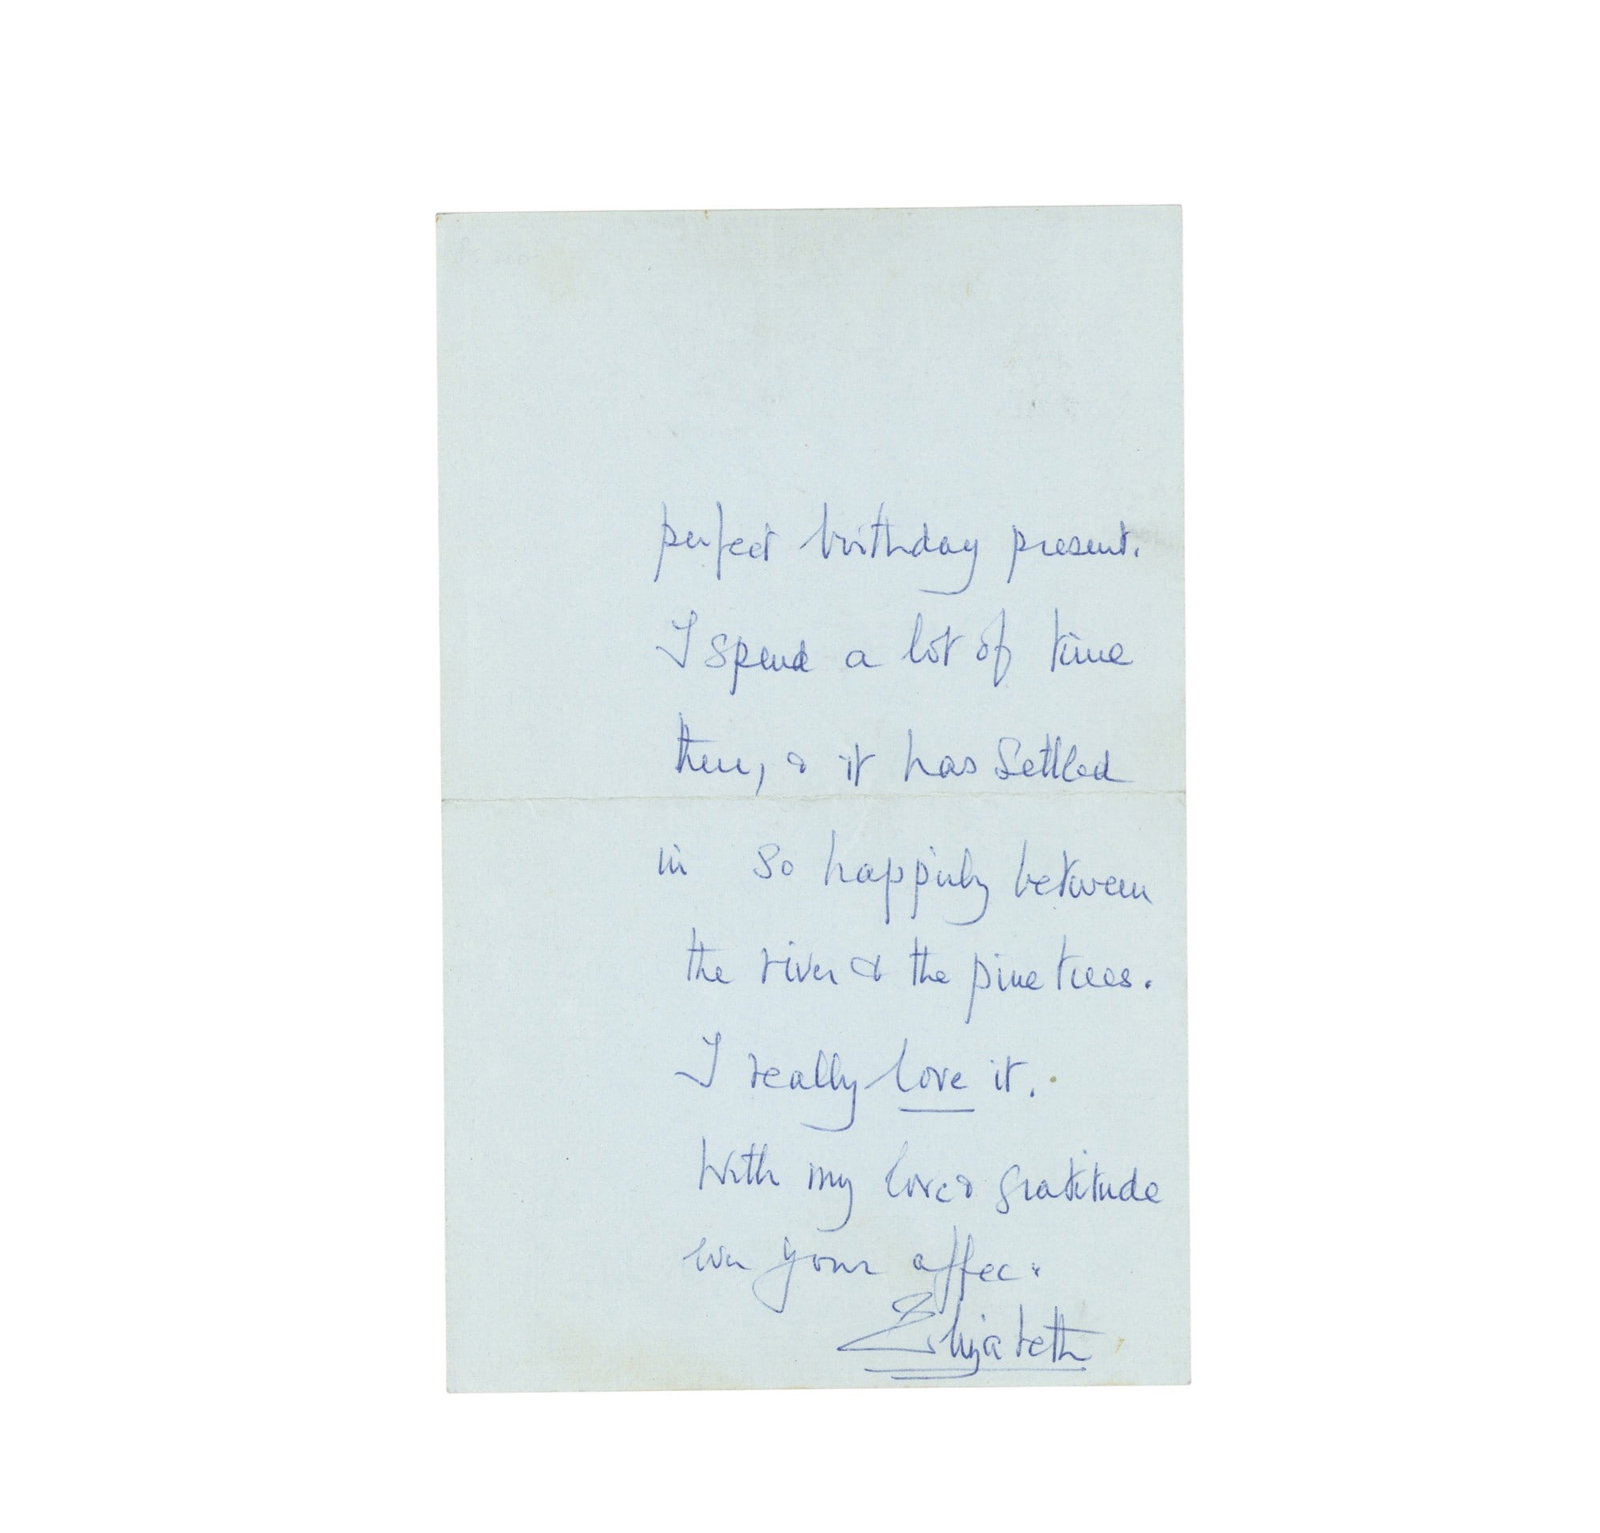 perfect birthday present.
I spend a lot of time
there, & it has settled
in so happily between
the river & the pine trees.
I really love it.
With my love & gratitude
ever your affec:
Elizabeth